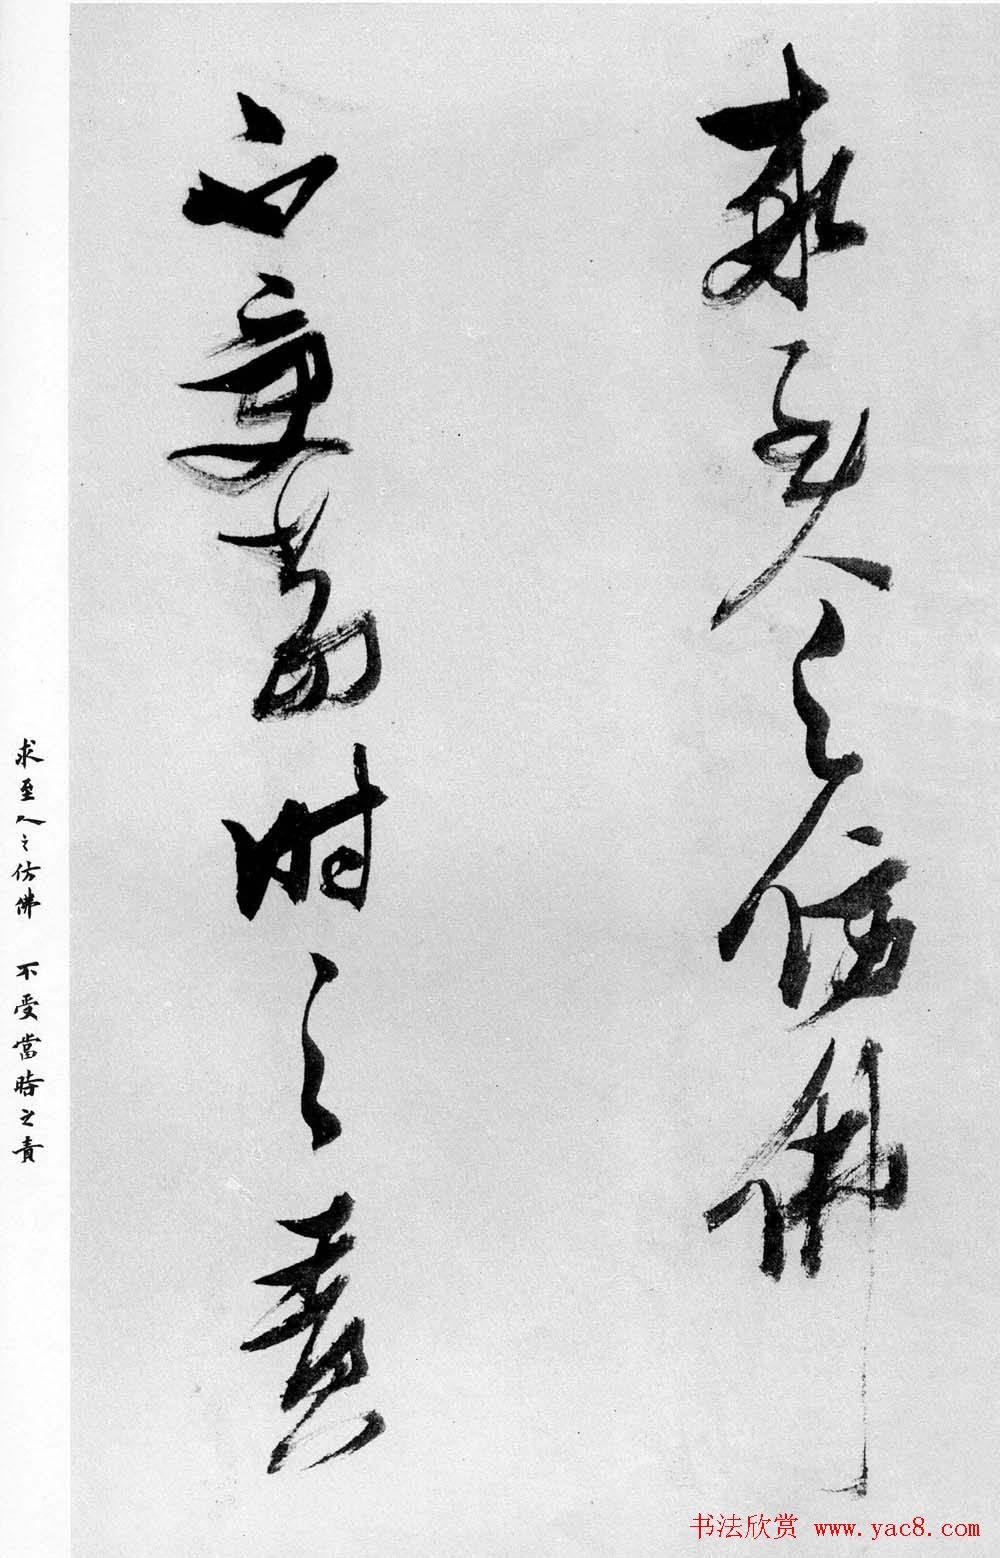 求至人之仿佛
不受當時之責
求至人之仿佛 不受當時之責
书法欣赏 www.yac8.com